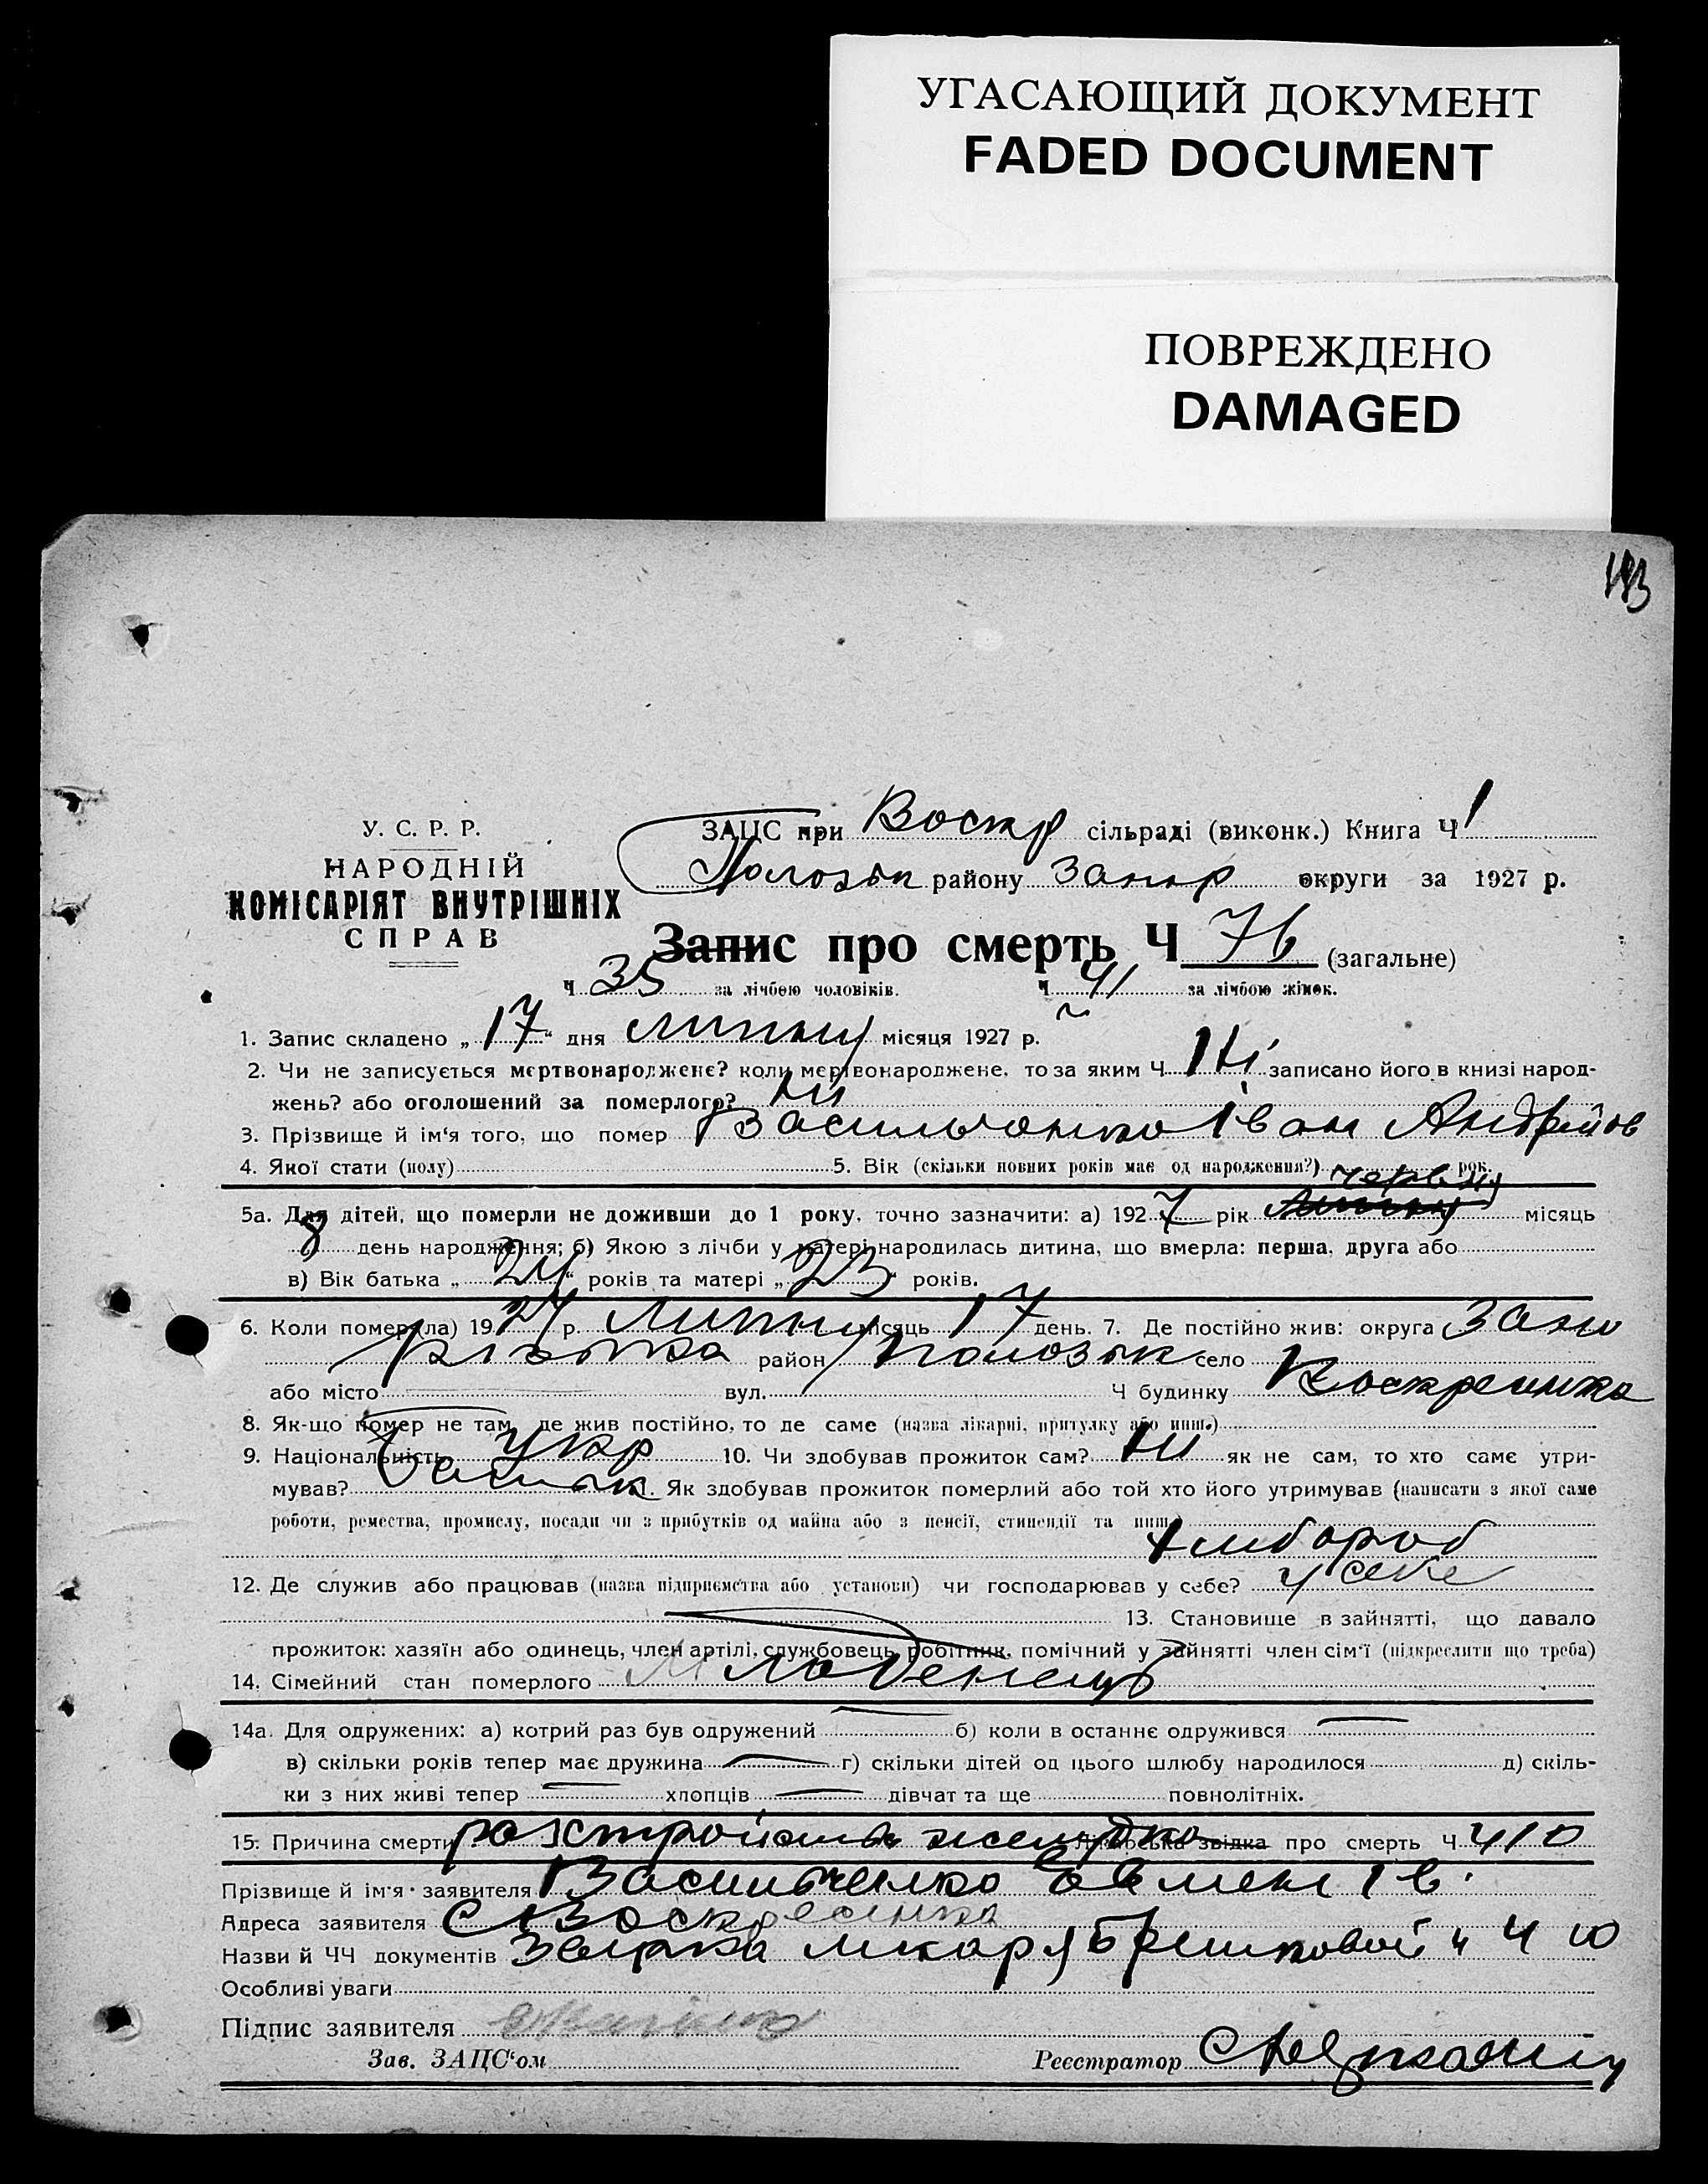 УГАСАЮЩИЙ ДОКУМЕНТ
FADED DOCUMENT
ПОВРЕЖДЕНО
DAMAGED
193
У. С. Р. Р.
НАРОДНІЙ
КОМІСАРІЯТ ВНУТРІШНІХ
СПРАВ
ЗАЦС при Воскр сільраді (виконк.) Книга Ч 1
Пологівк району Запор округи за 1927 р.
Запис про смерть Ч 76 (загальне)
Ч 35 за лічбою чоловіків. Ч 41 за лічбою жінок.
1. Запис складено „17“ дня липня місяця 1927 р.
2. Чи не записується мертвонароджене? коли мертвонароджене, то за яким Ч Ні записано його в книзі народ-
жень? або оголошений за померлого? ні
3. Прізвище й ім'я того, що помер Васильченко Іван Андріїов
4. Якої стати (полу) 5. Вік (скільки повних років має од народження?) рок.
червня
5а. Для дітей, що померли не доживши до 1 року, точно зазначити: а) 1927 рік липня місяць
8 день народження; б) Якою з лічби у матері народилась дитина, що вмерла: перша, друга або
в) Вік батька „24“ років та матері „23“ років.
6. Коли помер(ла) 1927 р. липня місяць 17 день. 7. Де постійно жив: округа Запо
різька район Пологівк село
або місто вул. Ч будинку Воскресинка
8. Як-що помер не там, де жив постійно, то де саме (назва лікарні, притулку або инш.)
9. Національність Укр 10. Чи здобував прожиток сам? ні як не сам, то хто саме утри-
мував? батько 11. Як здобував прожиток померлий або той хто його утримував (написати з якої саме
роботи, ремества, промислу, посади чи з прибутків од майна або з пенсії, стипендії та инш.)
хлібороб
12. Де служив або працював (назва підприємства або установи) чи господарював у себе? у себе
13. Становище в зайнятті, що давало
прожиток: хазяїн або одинець, член артілі, службовець, робітник, помічний у зайнятті член сім'ї (підкреслити що треба)
14. Сімейний стан померлого младенець
14а. Для одружених: а) котрий раз був одружений б) коли в останнє одружився
в) скільки років тепер має дружина г) скільки дітей од цього шлюбу народилося д) скіль-
ки з них живі тепер хлопців дівчат та ще повнолітніх.
15. Причина смерти розстройство желудка Лікарська звідка про смерть Ч 410
Прізвище й ім'я заявителя Васильченко Евмен Ів.
Адреса заявителя с Воскресинка
Назви й ЧЧ документів лікаря
Особливі уваги
Підпис заявителя
Зав. ЗАЦС'ом Реєстратор